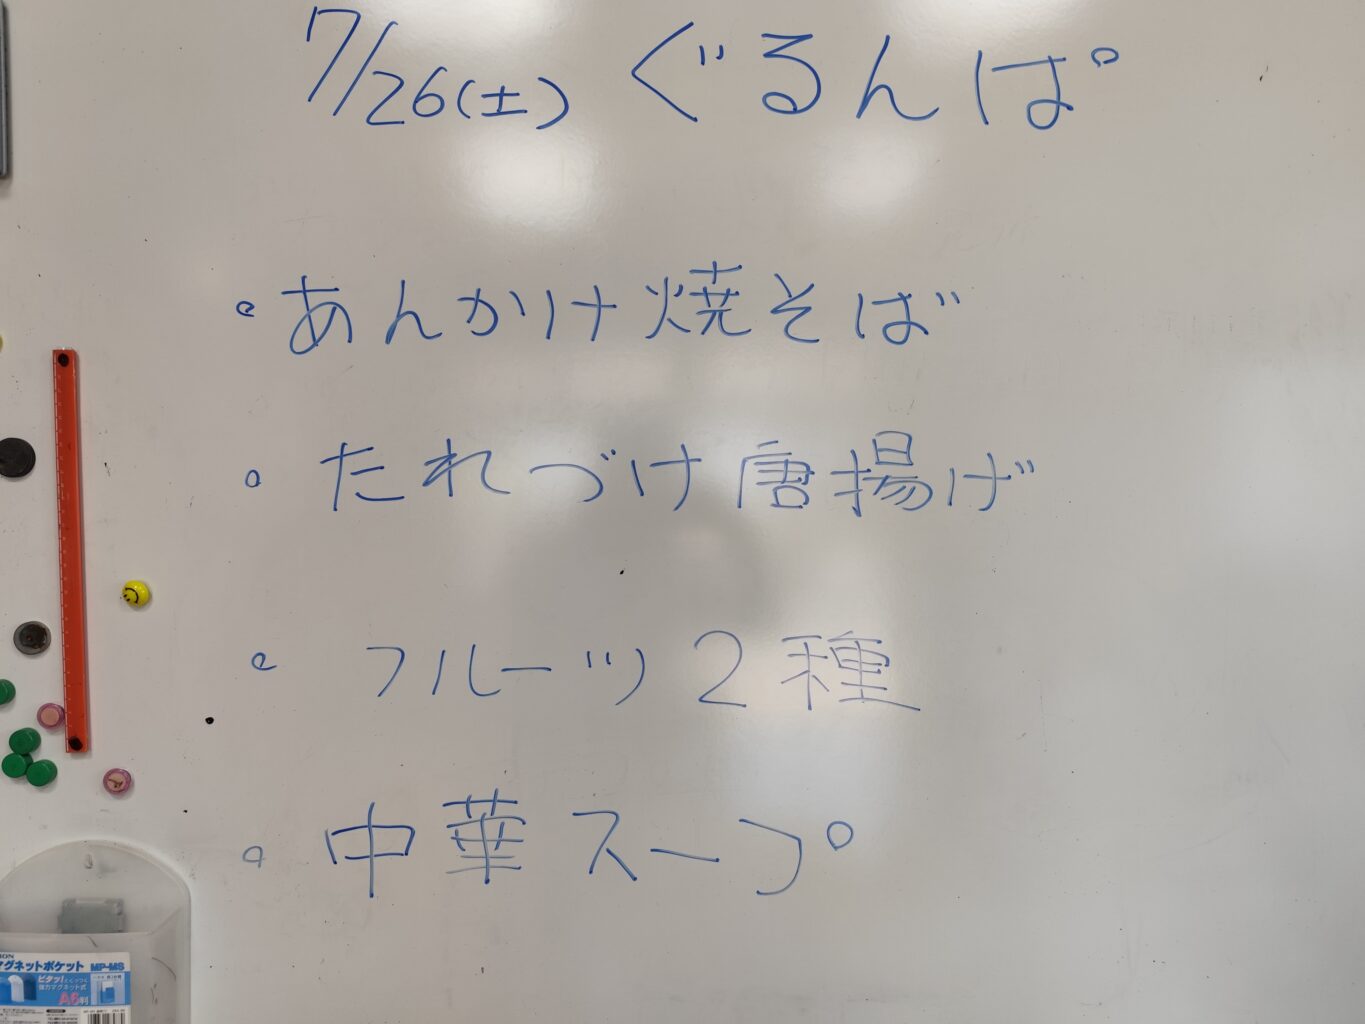 7/26(土) ぐるんぱ
・あんかけ焼そば
・たれづけ唐揚げ
・フルーツ2種
・中華スープ
マグネットポケット MP-MS
ピタッ!とくっつく
強力マグネット式
A6判